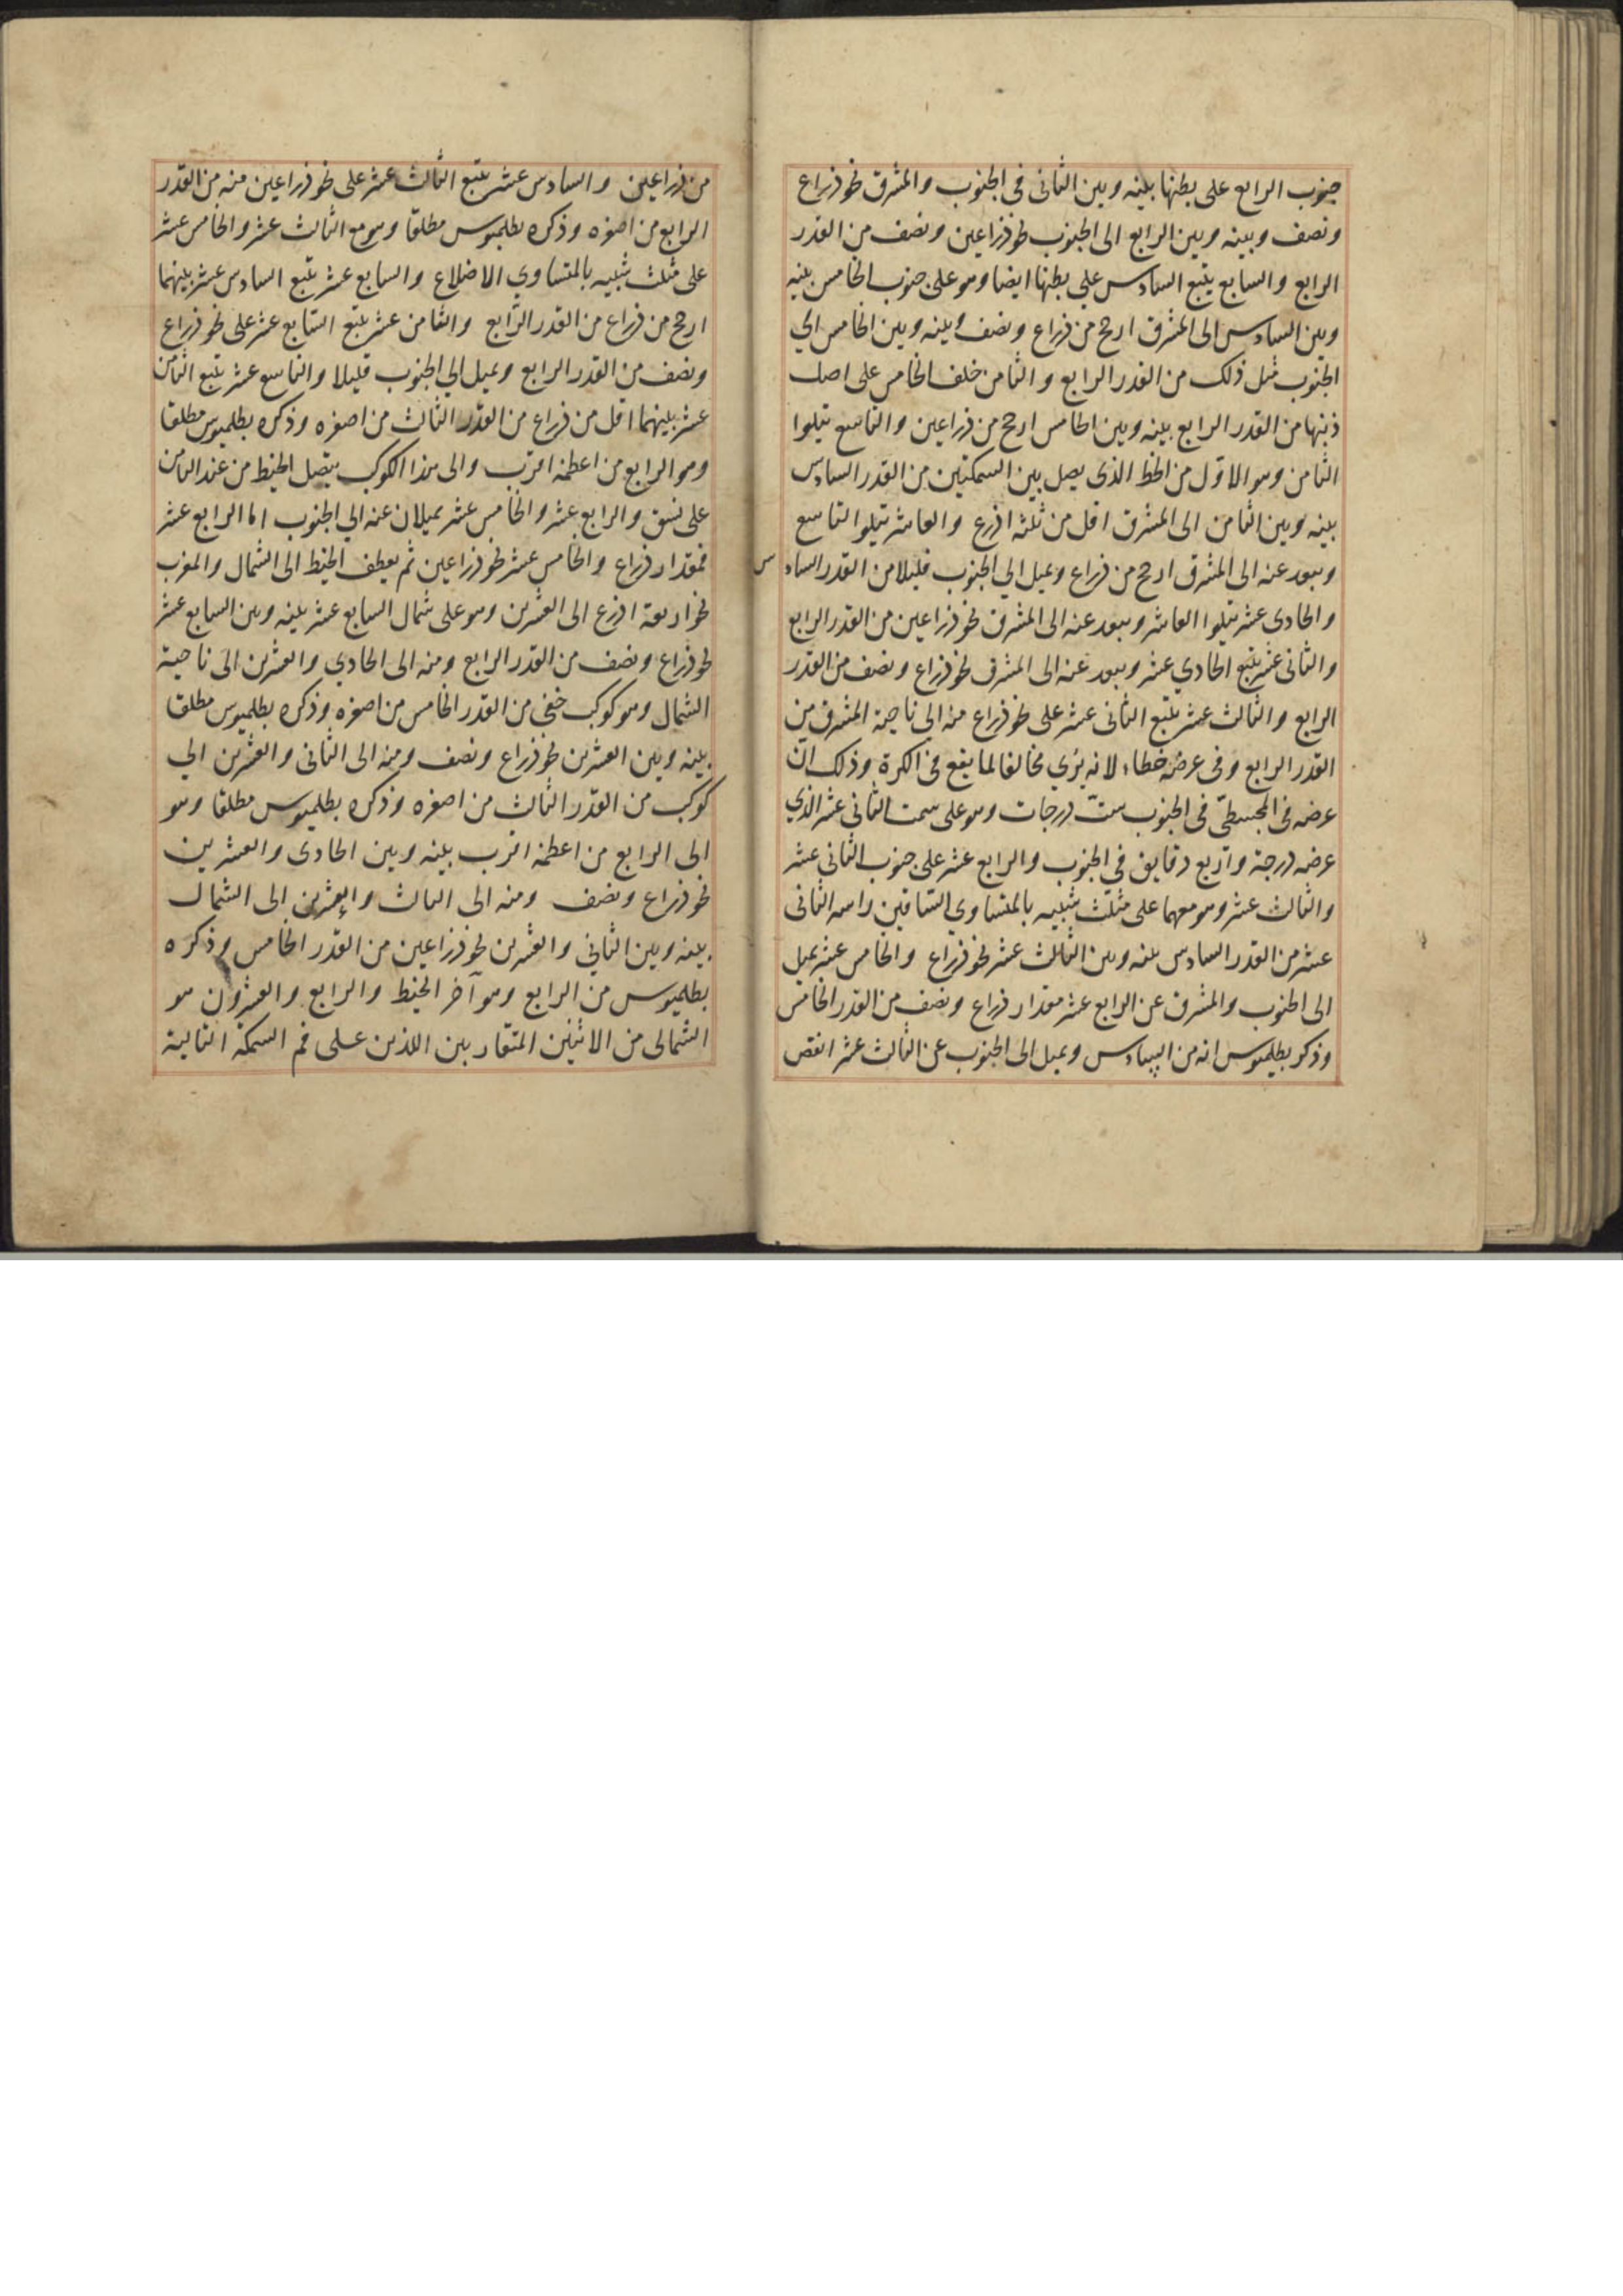 جنوب الرابع على بطنها بينه وبين الثانى فى الجنوب والمشرق نحو ذراع
ونصف وبينه وبين الرابع الى الجنوب نحو ذراعين ونصف من القدر
الرابع والسابع يتبع السادس على بطنها ايضا وهو على جنوب الخامس بينه
وبين السادس الى المشرق ارجح من ذراع ونصف وبينه وبين الخامس الى
الجنوب مثل ذلك من القدر الرابع والثامن خلف الخامس على اصل
ذنبها من القدر الرابع بينه وبين الخامس ارجح من ذراعين والتاسع يتلوا
الثامن وهو الاوّل من الخط الذى يصل بين السمكتين من القدر السادس
بينه وبين الثامن الى المشرق اقل من ثلثة اذرع والعاشر يتلوا التاسع
ويبعد عنه الى المشرق ارجح من ذراع ويميل الى الجنوب قليلا من القدر السادس
والحادى عشر يتلوا العاشر ويبعد عنه الى المشرق نحو ذراعين من القدر الرابع
والثانى عشر يتبع الحادي عشر ويبعد عنه الى المشرق نحو ذراع ونصف من القدر
الرابع والثالث عشر يتبع الثانى عشر على نحو ذراع منه الى ناحية المشرق من
القدر الرابع وفى عرضه خطاء لانه يرى مخالفا لما يقع فى الكرة وذلك انّ
عرضه فى المجسطىّ فى الجنوب ستّ درجات وهو على سمت الثانى عشر الذي
عرضه درجة واربع دقايق فى الجنوب والرابع عشر على جنوب الثانى عشر
والثالث عشر وهو معهما على مثلث شبيه بالمتساوي الساقين راسه الثانى
عشر من القدر السادس بينه وبين الثالث عشر نحو ذراع والخامس عشر يميل
الى الجنوب والمشرق عن الرابع عشر مقدار ذراع ونصف من القدر الخامس
وذكر بطلميوس انه من السادس ويميل الى الجنوب عن الثالث عشر انقص
من ذراعين والسادس عشر يتبع الثالث عشر على نحو ذراعين منه من القدر
الرابع من اصغره وذكره بطلميوس مطلقا وهو مع الثالث عشر والخامس عشر
على مثلث شبيه بالمتساوي الاضلاع والسابع عشر يتبع السادس عشر بينهما
ارجح من ذراع من القدر الرّابع والثامن عشر يتبع السّابع عشر على نحو ذراع
ونصف من القدر الرابع ويميل الى الجنوب قليلا والتاسع عشر يتبع الثامن
عشر بينهما اقل من ذراع من القدر الثالث من اصغره وذكره بطلميوس مطلقا
وهو الرابع من اعظمه اقرب والى هذا الكوكب يتصل الخيط من عند الثامن
على نسق والرابع عشر والخامس عشر يميلان عنه الى الجنوب اما الرابع عشر
فمقدار ذراع والخامس عشر نحو ذراعين ثم يعطف الخيط الى الشمال والمغرب
نحو اربعة اذرع الى العشرين وهو على شمال السابع عشر بينه وبين السابع عشر
نحو ذراع ونصف من القدر الرابع ومنه الى الحادي والعشرين الى ناحية
الشمال وهو كوكب خفى من القدر الخامس من اصغره وذكره بطلميوس مطلقا
بينه وبين العشرين نحو ذراع ونصف ومنه الى الثانى والعشرين الى
كوكب من القدر الثالث من اصغره وذكره بطلميوس مطلقا وهو
الى الرابع من اعظمه اقرب بينه وبين الحادى والعشرين
نحو ذراع ونصف ومنه الى الثالث والعشرين الى الشمال
بينه وبين الثاني والعشرين نحو ذراعين من القدر الخامس وذكره
بطلميوس من الرابع وهو آخر الخيط والرابع والعشرون هو
الشمالى من الاثنين المتقاربين اللذين على فم السمكة التالية